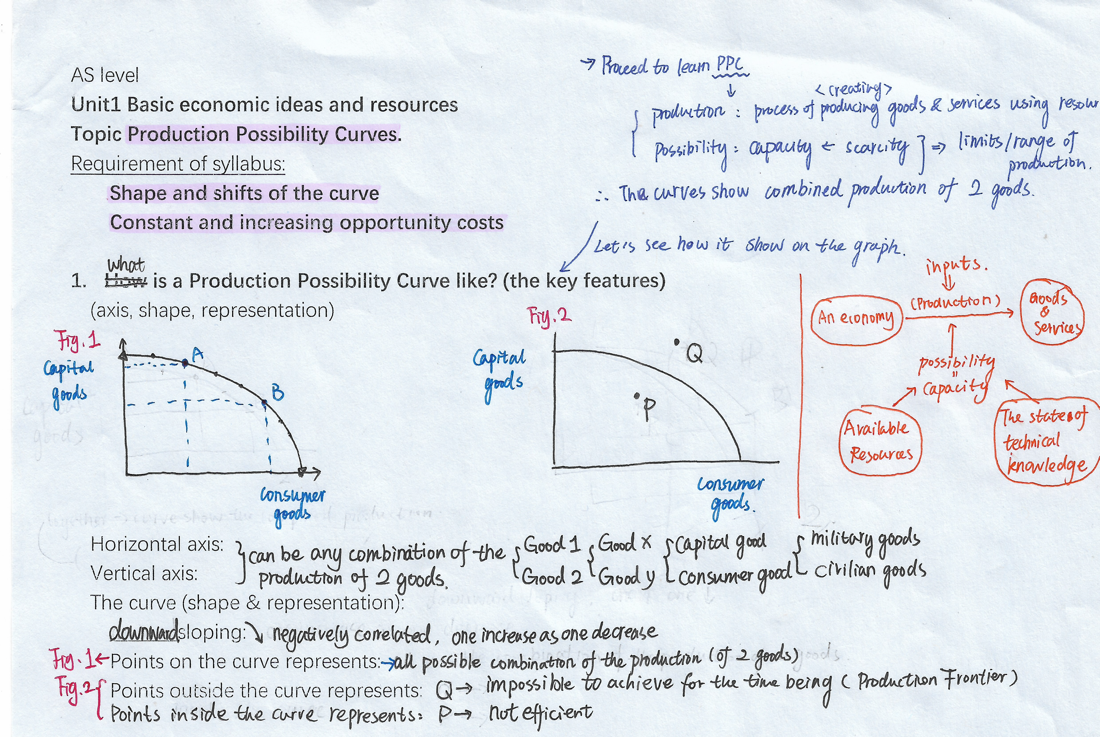 AS level
Unit1 Basic economic ideas and resources
Topic Production Possibility Curves.
Requirement of syllabus:
Shape and shifts of the curve
Constant and increasing opportunity costs
→ Proceed to learn PPC
↓ <creating>
production : process of producing goods & services using resour
Possibility : capacity ← scarcity ] ⇒ limits/range of
production.
∴ The curves show combined production of 2 goods.
Let's see how it show on the graph.
what
1. How is a Production Possibility Curve like? (the key features)
(axis, shape, representation)
Fig.1
Capital
goods
A
B
consumer
goods
Fig.2
Capital
goods
Q
P
consumer
goods.
inputs.
An economy
(Production)
Goods
&
Services
possibility
"
Capacity
Available
Resources
The states of
technical
knowledge
Horizontal axis: } can be any combination of the { Good 1 { Good x { Capital good { military goods
Vertical axis: production of 2 goods. Good 2 Good y consumer good civilian goods
The curve (shape & representation):
downward sloping: ↘ negatively correlated, one increase as one decrease
Fig.1 ← Points on the curve represents: → all possible combination of the production (of 2 goods)
Fig.2 { Points outside the curve represents: Q → impossible to achieve for the time being (Production Frontier)
Points inside the curve represents: P → not efficient